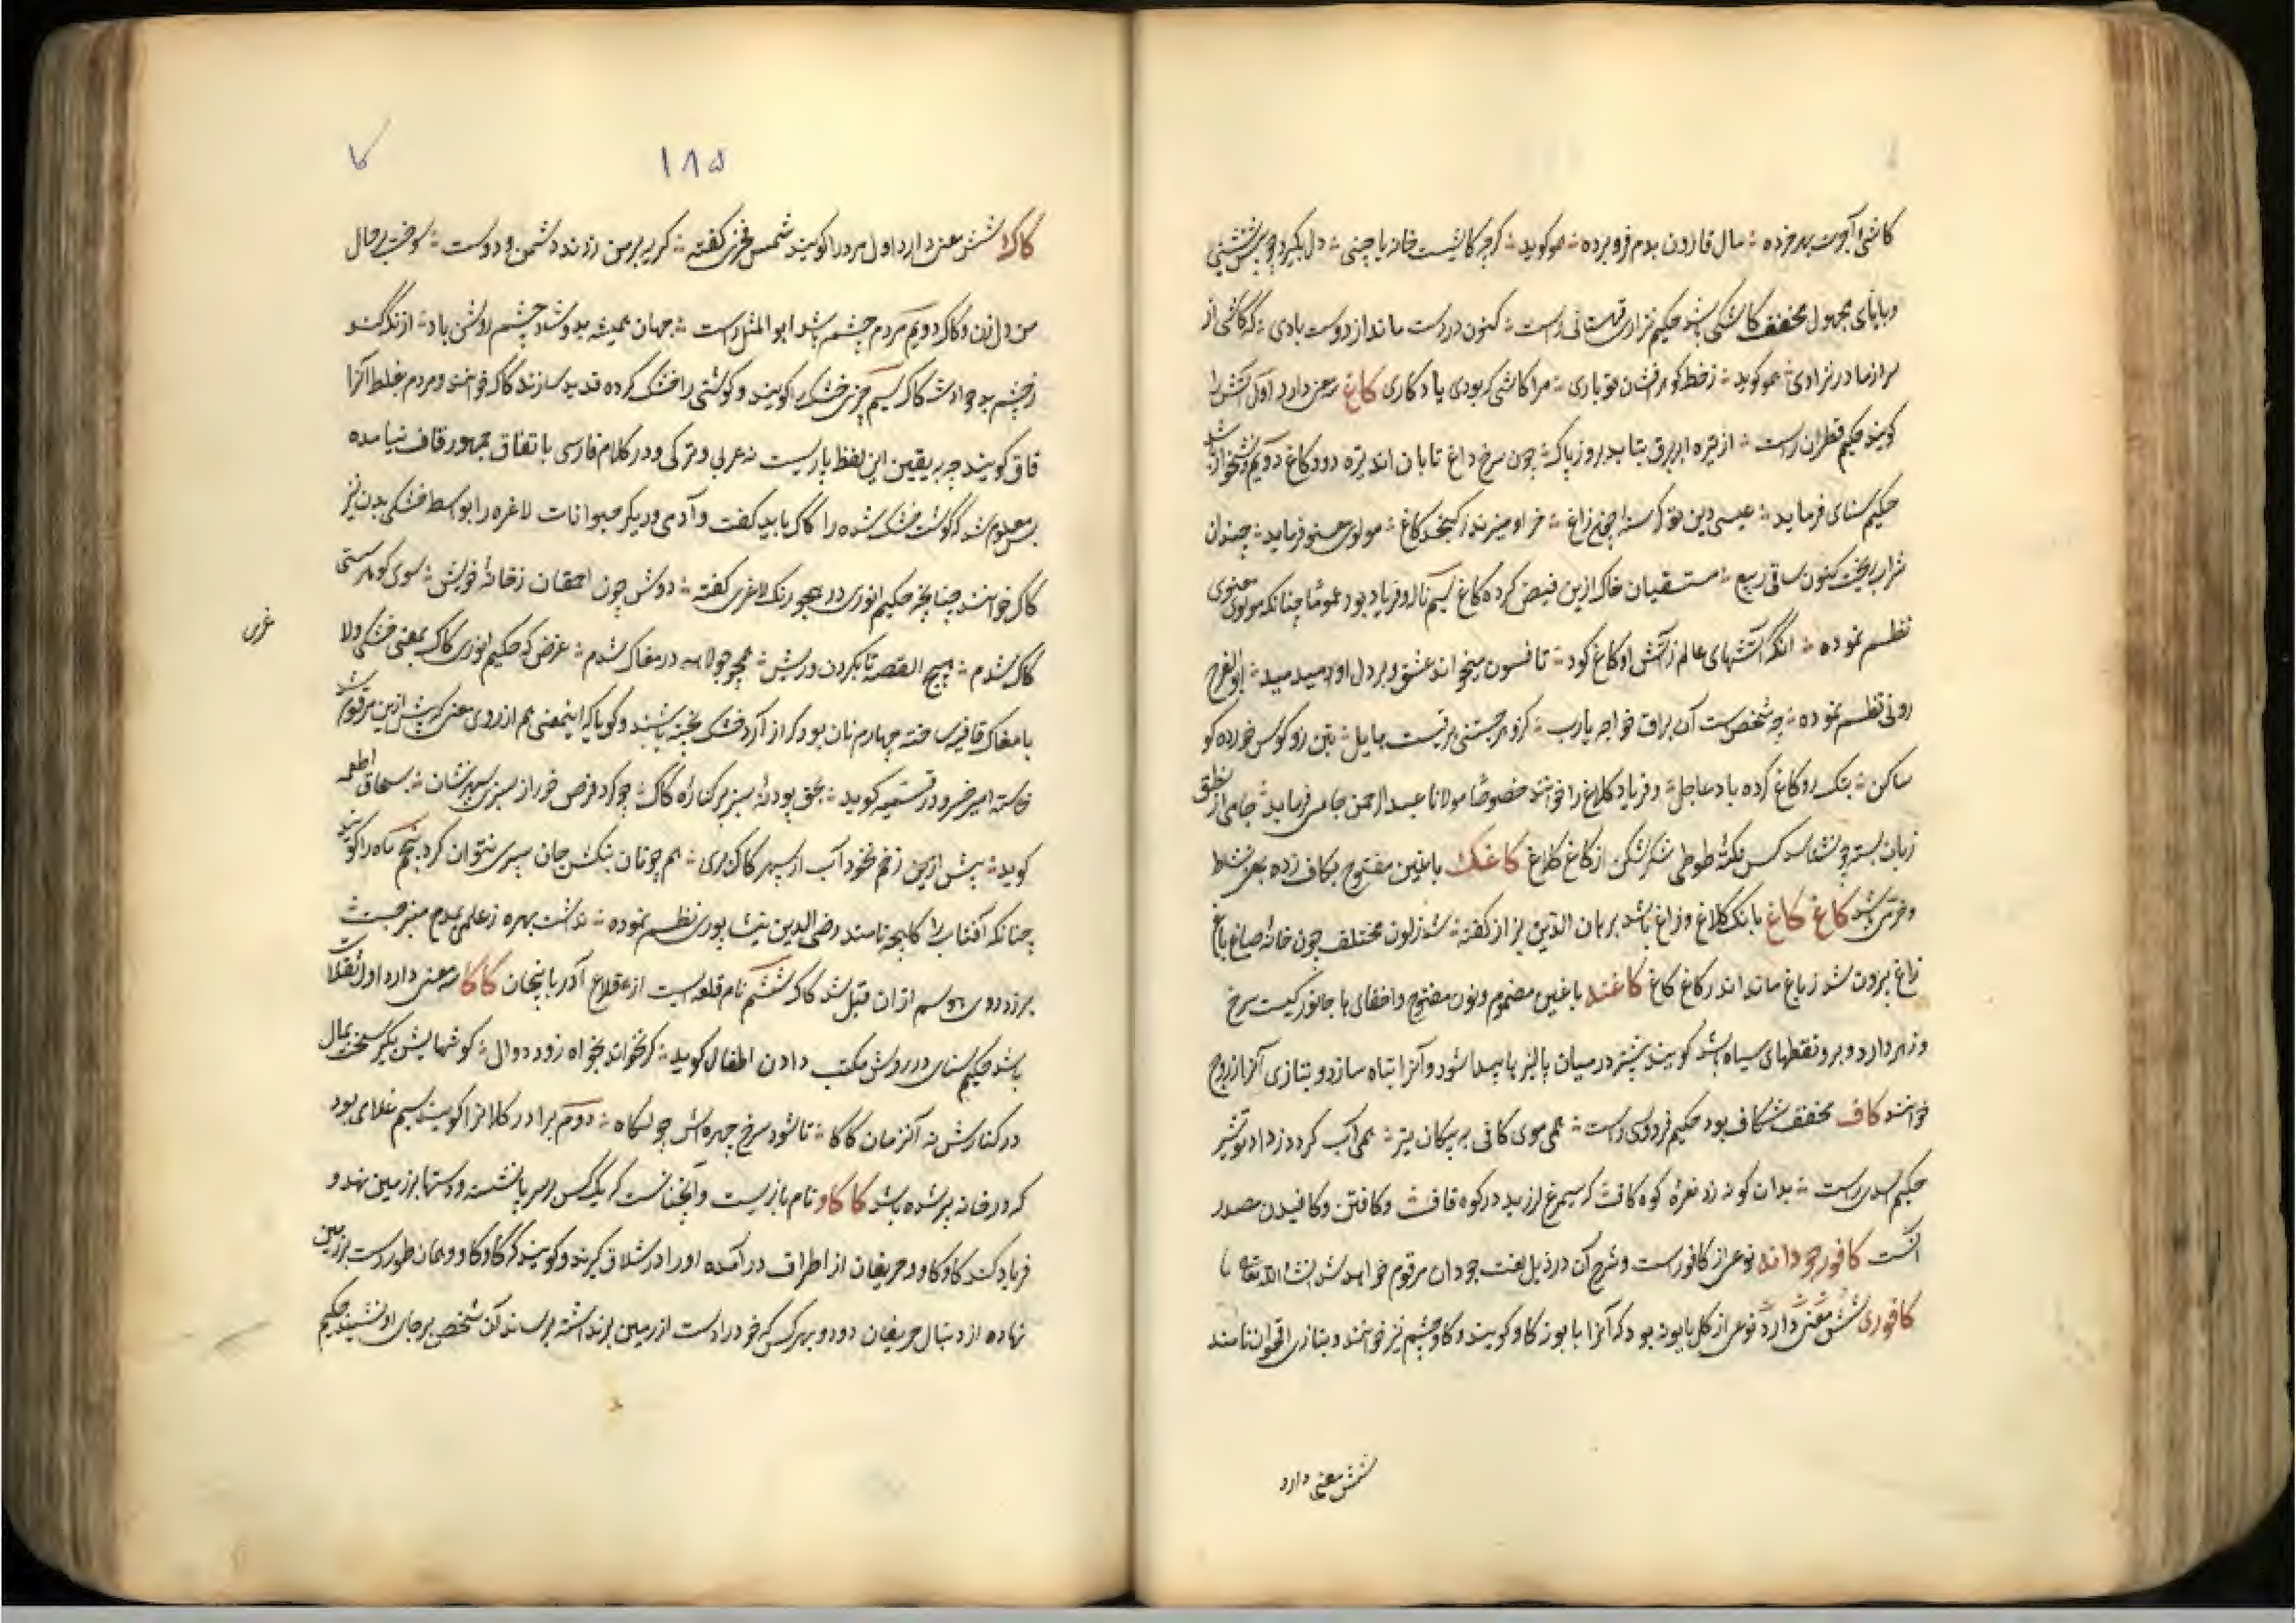 کاشی آجرت بهر خزده ؛ مال قارون بدم فرو برده ؛ همو کوید ؛ کرچه کاشیست خانه یا چینی ؛ دل بکیرد چو بس نشینی
و بایای مجهول مخفف کاشکی باشد حکیم نزاری قهستانی راست ؛ کنون در دست ماند از دوست بادی ؛ که کاشی از
مرا زمادر نزادی ؛ همو کوید ؛ زخط کوهر فشان تو باری ؛ مرا کاشی که بودی یادکاری کاغ سه معنی دارد اول آتش را
کویند حکیم قطران راست ؛ از تیره ابر برق بتابد بروز پاک ؛ چون سرخ داغ تابان اندر تیره دود کاغ دویم نشخوار باشد
حکیم سنای فرماید ؛ عیسی دین تو کرسنه همچو زاغ ؛ خر او میزند زکنجد کاغ ؛ مولوی معنوی فرماید ؛ چندان
شراب ریخت کنون ساقی ربیع ؛ مستسقیان خاک ازین فیض کرده کاغ سیم ناله و فریاد بود عموما چنانکه مولوی معنوی
نظم نموده ؛ آنکه آتشهای عالم زآتش او کاغ کود ؛ تا فسون میخواند عشق و بر دل او میدمید ؛ ابوالفرج
رونی نظم نموده ؛ چه شخص است آن براق خواجه یارب ؛ کزو هر جستنی برقیست هایل ؛ بتن رو کوس خورده کوه
ساکن ؛ بتک رو کاغ کرده باد عاجل ؛ و فریاد کلاغ را خوانند خصوصا مولانا عبدالرحمن جامی فرماید ؛ جامی از نطق
زبان بسته چو نشناسد کس نکته طوطی شکر شکن از کاغ کلاغ کاغک با غین مفتوح بکاف زده بمعنی نشاط
و خرمی باشد کاغ کاغ بانک کلاغ و زاغ باشد برهان الدین بزاز کفته ؛ شد زلون مختلف چون خانه صباغ باغ
زاغ بیرون شد زباغ ماند اندر کاغ کاغ کاغنه با غین مضموم و نون مفتوح و اخفای ها جانوریست سرخ
و زهر دارد و برو نقطهای سیاه باشد کویند بیشتر در میان پالیزها پیدا شود و آنرا تباه سازد و بتازی آنرا ذروح
خوانند کاف مخفف شکاف بود حکیم فردوسی راست ؛ همی موی کافی به پیکان تیر ؛ همی آب کردد ز داد تو شیر
حکیم اسدی راست ؛ بدان کونه زد نعره کوه کافت که سیمرغ لرزید در کوه قاف ؛ و کافتن و کافیدن مصدر
آنست کافور جودانه نوعی از کافور است و شرح آن در ذیل لغت جودان مرقوم خواهد شد انشا الله تعالی
کافوری شش معنی دارد نوعی از کل بابونه بود که آنرا بابونه کاو کویند و کاو چشم نیز خوانند و بتازی اقحوان نامند
شش معنی دارد
۱۸۵
کا
کاک شش معنی دارد اول مرد را کویند شمس فخری کفته ؛ کریه بر من زدند دشمن و دوست ؛ سوخت بر حال
من دل زن و کاک دویم مردم چشم باشد ابوالمثل راست ؛ جهان همیشه بدو شاد چشم روشن باد ؛ از کزند
زچشم بد حوادث کاک سیم چیزی خشک را کویند و کوشتی را خشک کرده قدید سازند کاک خوانند و مردم غلط آنرا
قاق کویند چه به یقین این لفظ پارسیست نه عربی و ترکی و در کلام فارسی باتفاق جمهور قاف نیامده
پس معلوم شد که کوشت خشک شده را کاک باید کفت و آدمی و دیکر حیوانات لاغر را بواسطه خشکی بدن نیز
کاک خوانند چنانچه حکیم انوری در هجو رنک لاغری کفته ؛ دوش چون احمقان زخانه خویش ؛ سوی کوهرستی
کاک شدم ؛ هیچ القصه تا بکردن و ریش ؛ همچو جولاهه در مغاک شدم ؛ غرض که حکیم انوری کاک بمعنی خشک و لا
غرس
با مغاک قافیه ساخته چهارم نان بود که از آرد خشک پخته باشند و کویا که اینمعنی هم از روی معنی که پیش ازین مرقوم شد
خاسته امیر خسرو در قسمیه کوید ؛ بحق پودنه سبز بر کناره کاک ؛ چو کرد قرص خور از سبزی سپهر نشان ؛ بسحاق اطعمه
کوید ؛ پیش ازین زغم نخورد آب از سپهر کاک بری ؛ هم چو نان بنکش جان سپری نتوان کرد پنجم ماه را کویند
چنانکه آفتاب را کلیچه نامند رضی الدین نیشاپوری نظم نموده ؛ نداشت بهره زعلمی
هر زد روی بوسم از ان قبل شد کاک ششم نام قلعه ایست از قلاع آذربایجان کاکا سه معنی دارد اول تنقلات
باشد حکیم سنای در روش مکتب دادن اطفال کوید ؛ کر نخواند بخواه زود دوال ؛ کوشهایش بکیر سخت بمال
در کنارش نه آنزمان کاکا ؛ تا شود سرخ چهره اش چو لکا ؛ دوم برادر کلانرا کویند سیم غلامی بود
که در خانه پیر شده باشد کاکاو نام بازیست و آنچنانست که یک کس بر سر پا نشسته و دستها بر زمین نهد و
فریاد کند کاو کاو و حریفان از اطراف در آمده او را در شلاق کیرند و کویند که کاو کاو و همان طور دست بر زمین
نهاده از دنبال حریفان دود و بهر کس که خود را دست از زمین برنداشته برساند آن شخص بر جای او نشیند حکیم